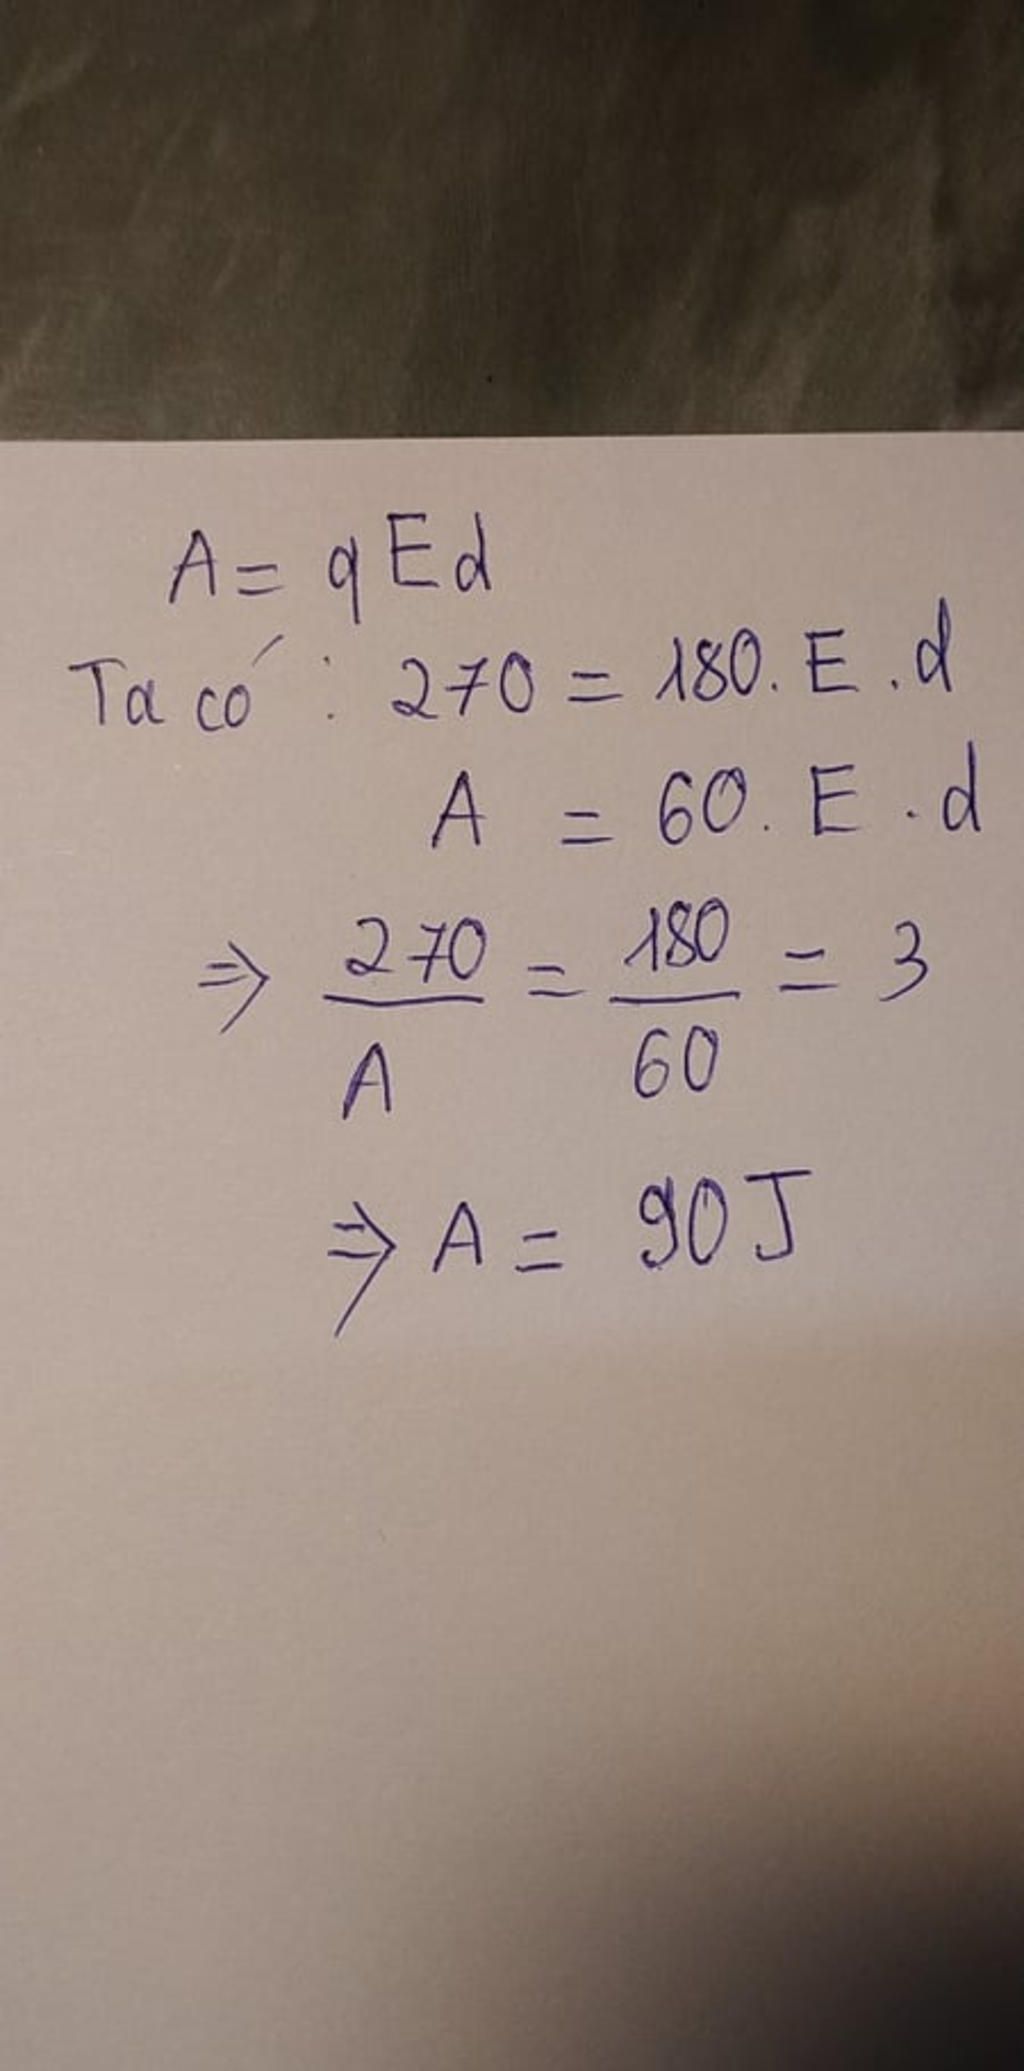 A = qEd
Ta có : 270 = 180. E . d
A = 60. E . d
⇒ 270/A = 180/60 = 3
⇒ A = 90J